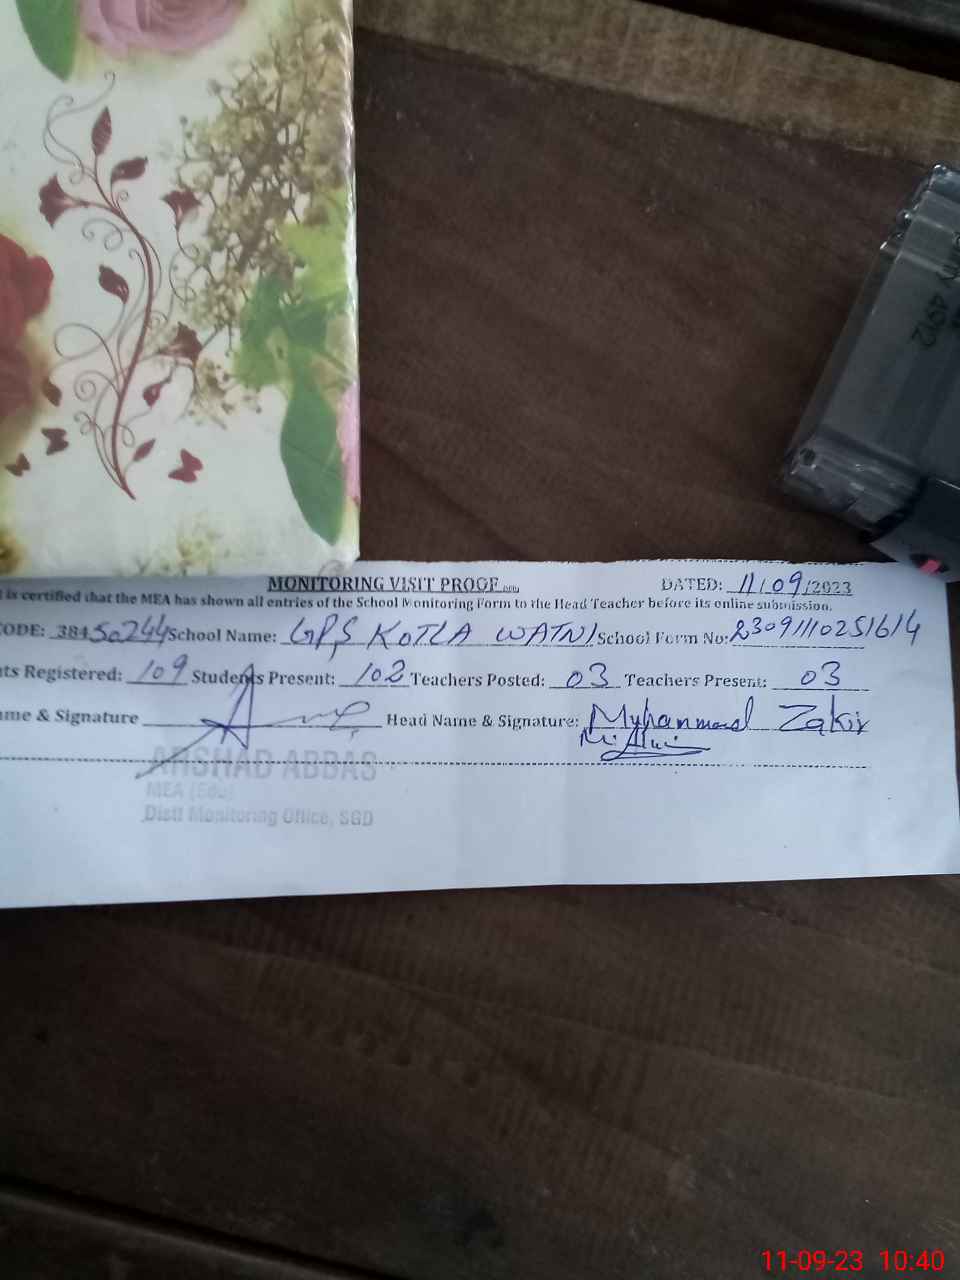 MONITORING VISIT PROOF DATED: 11/09/2023
is certified that the MEA has shown all entries of the School Monitoring Form to the Head Teacher before its online submission.
CODE: 38450244 School Name: GPS KOTLA WATNI School Form No: 23091110251614
ts Registered: 109 Students Present: 102 Teachers Posted: 03 Teachers Present: 03
me & Signature Head Name & Signature: Muhammad Zakir
ARSHAD ABBAS
MEA (Edu)
Distt Monitoring Office, SGD
11-09-23 10:40